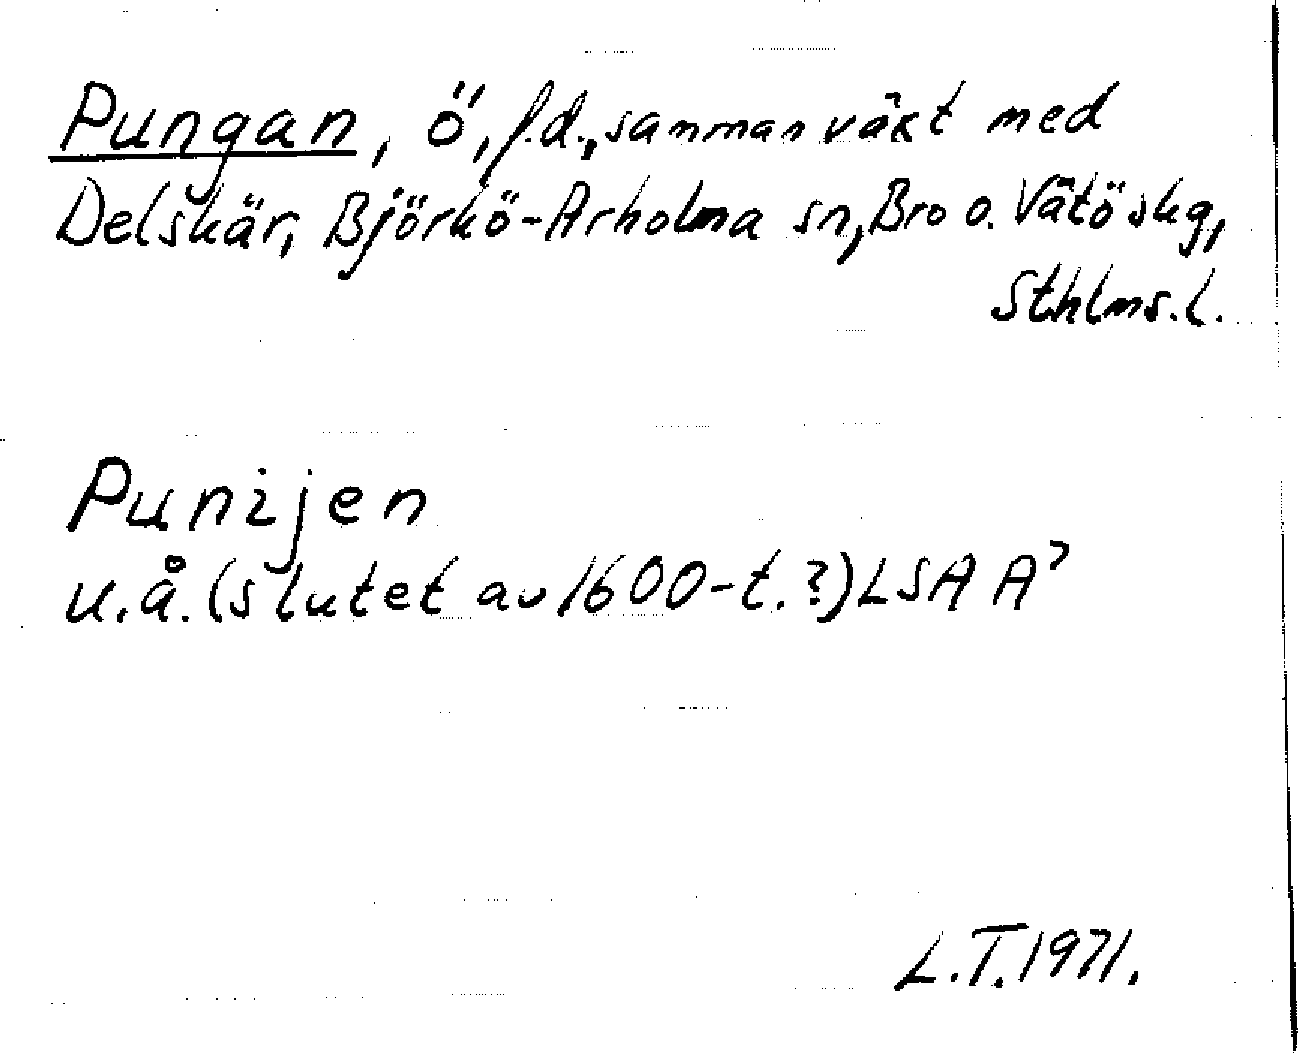 Pungan, ö, f.d., sammanväxt med
Delskär, Björkö-Arholma sn, Bro o. Vätö skg,
Sthlms.l.
Punijen
u.å. (slutet av 1600-t.?) LSA A?
L.T. 1971.